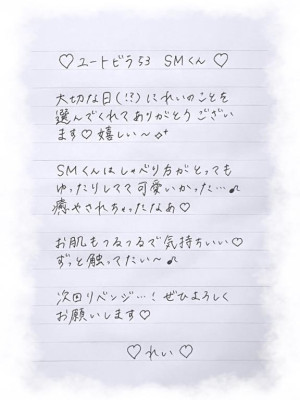 ♡ ユートピラ53 SMくん ♡
大切な日(!?)にれいのことを
選んでくれてありがとうござい
ます♡嬉しい〜✧⁺
SMくんはしゃべり方がとっても
ゆったりしてて可愛いかった…♪
癒やされちゃったなあ♡
お肌もつるつるで気持ちいい♡
ずっと触ってたい〜♪
次回リベンジ…!ぜひよろしく
お願いします♡
♡れい♡